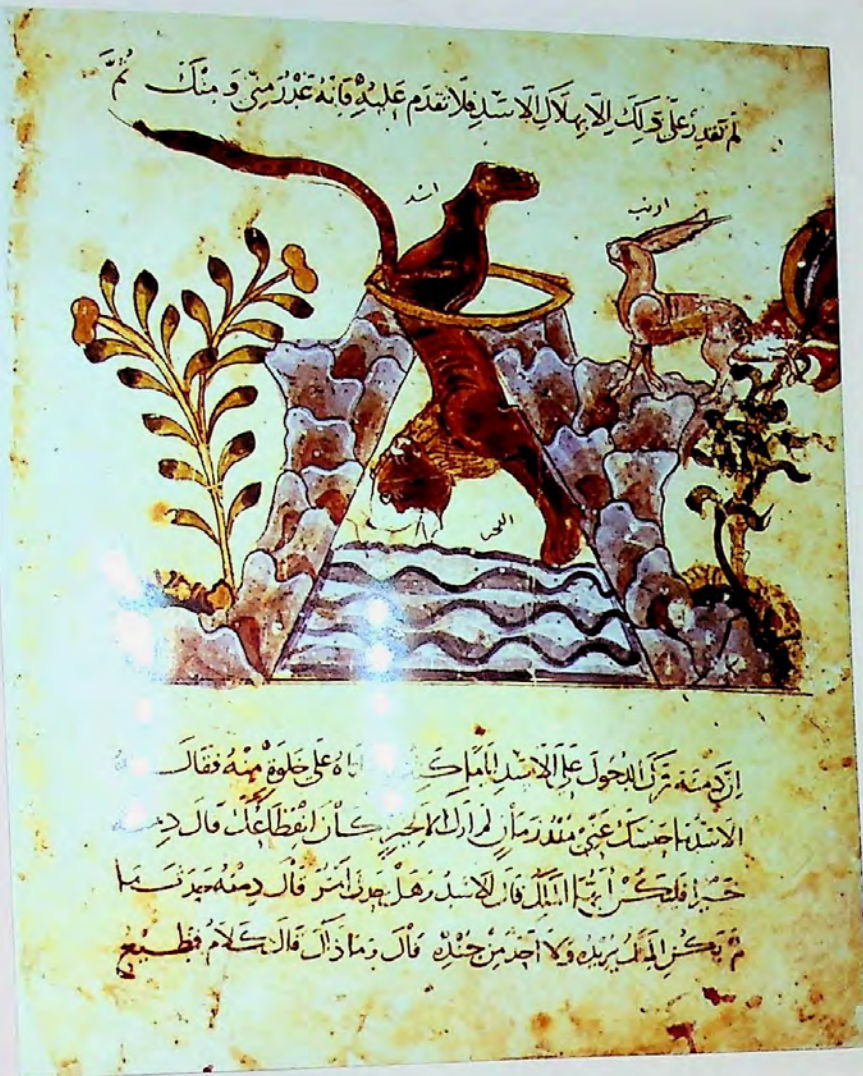 لم تقدر على ذلك الا بهلاك الاسد فلا تقدم عليه فانه غدر مني و منك ثم
اسد
ارنب
ان دمنة ترك الدخول على الاسد اياما كثيرة على خلوة منه فقال
الاسد ما حبسك عني منذ زمان لم ارك الا لخير كان انقطاعك قال دمنه
خيرا فليكن ايها الملك قال الاسد وهل حدث امر قال دمنه حدث ما
لم يكن الملك يريده ولا احد من جنده قال وما ذاك قال كلام فظيع